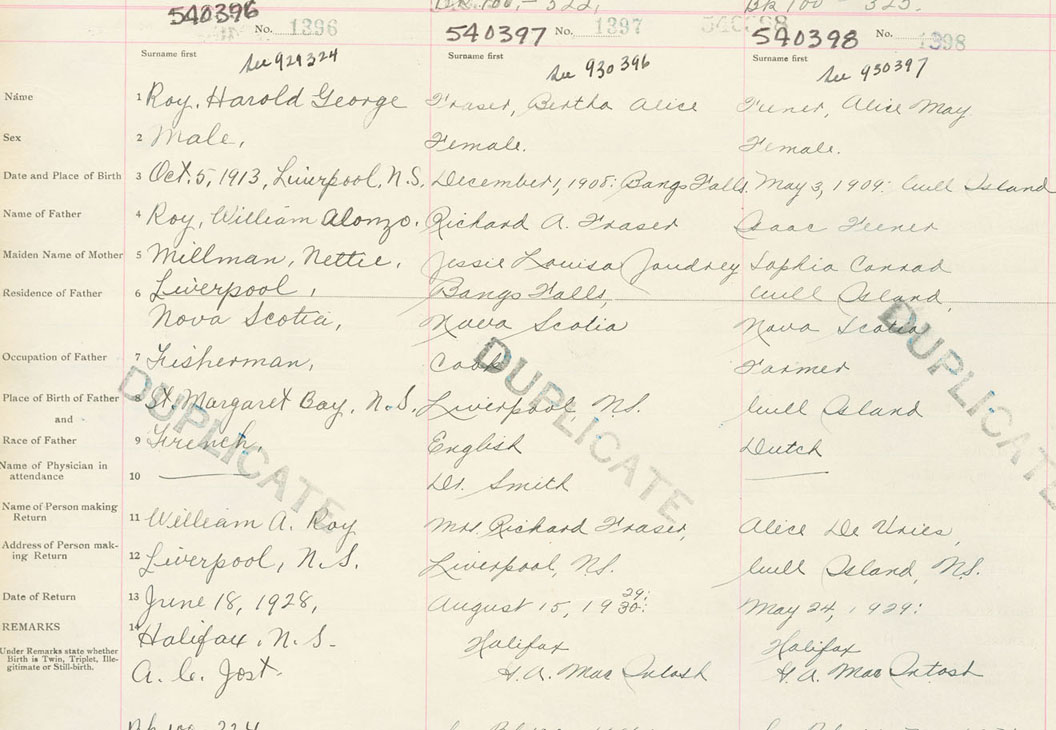 540396
No. 1396
See 929324
Surname first
540397
No. 1397
See 930396
Surname first
540398
No. 1398
See 930397
Surname first
Name
1 Roy, Harold George
Fraser, Bertha Alice
Feener, Alice May
Sex
2 Male,
Female.
Female.
Date and Place of Birth
3 Oct. 5, 1913, Liverpool, N.S.
December 1, 1908: Bangs Falls
May 3, 1909: Island
Name of Father
4 Roy, William Alonzo.
Richard A. Fraser
Isaac Feener
Maiden Name of Mother
5 Millman, Nettie.
Jessie Louisa Joudrey
Sophia Conrad
Residence of Father
6 Liverpool,
Nova Scotia,
Bangs Falls,
Nova Scotia
Island
Nova Scotia
Occupation of Father
7 Fisherman,
Cook
Farmer
Place of Birth of Father
and
Race of Father
8 St. Margaret Bay, N.S.
9 French,
Liverpool, N.S.
English
Island
Dutch
Name of Physician in
attendance
10
Dr. Smith
Name of Person making
Return
11 William A. Roy
Mrs. Richard Fraser,
Alice De Vries,
Address of Person mak-
ing Return
12 Liverpool, N.S.
Liverpool, N.S.
Island, N.S.
Date of Return
13 June 18, 1928,
29:
August 15, 1930:
May 24, 1929:
REMARKS
Under Remarks state whether
Birth is Twin, Triplet, Ille-
gitimate or Still-birth.
14 Halifax, N.S.
A. C. Jost.
Halifax
H. A. MacIntosh
Halifax
H. A. MacIntosh
DUPLICATE
DUPLICATE
DUPLICATE